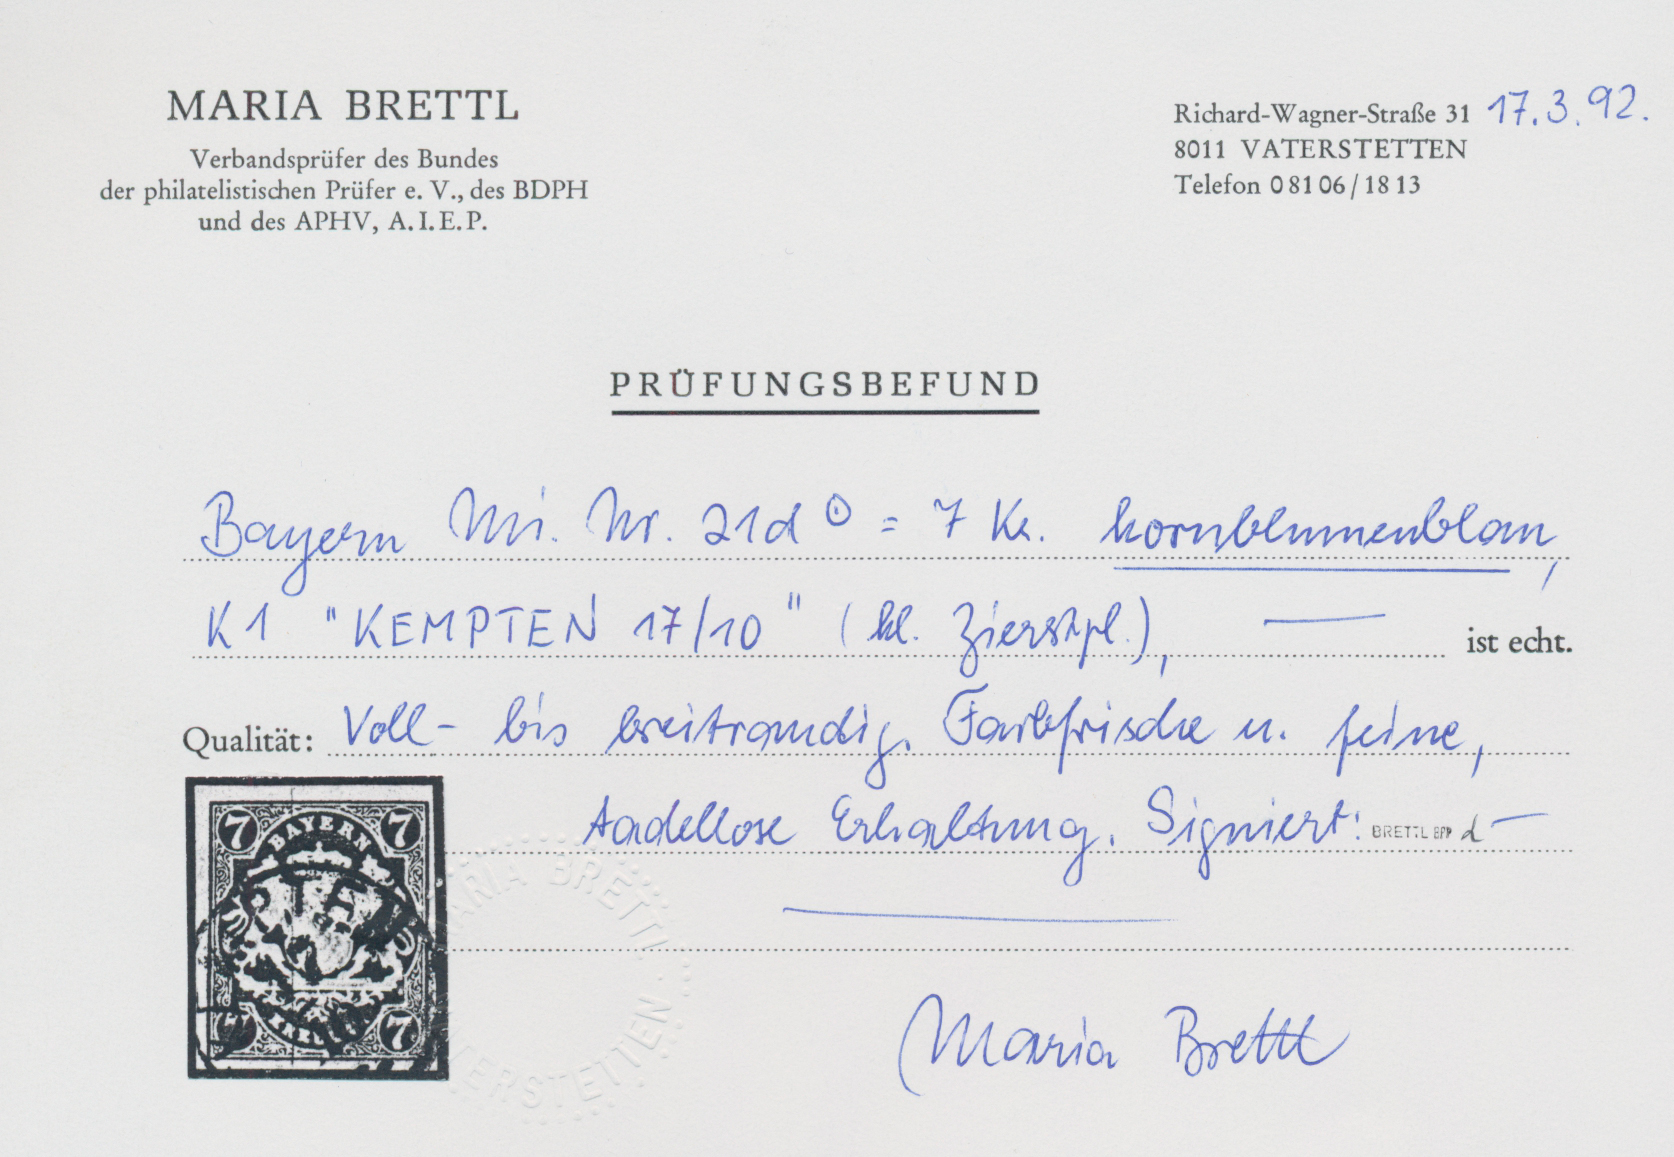 MARIA BRETTL
Verbandsprüfer des Bundes
der philatelistischen Prüfer e. V., des BDPH
und des APHV, A.I.E.P.
Richard-Wagner-Straße 31 17.3.92.
8011 VATERSTETTEN
Telefon 08106/1813
PRÜFUNGSBEFUND
Bayern Mi. Nr. 21d ⊙ = 7 Kr. kornblumenblau,
K1 "KEMPTEN 17/10" (kl. Zierstpl.), — ist echt.
Qualität: Voll- bis breitrandig. Farbfrische u. feine,
tadellose Erhaltung. Signiert: BRETTL BPP d —
7 BAYERN 7
PTEN
7 7
MARIA BRETTL
VATERSTETTEN
Maria Brettl